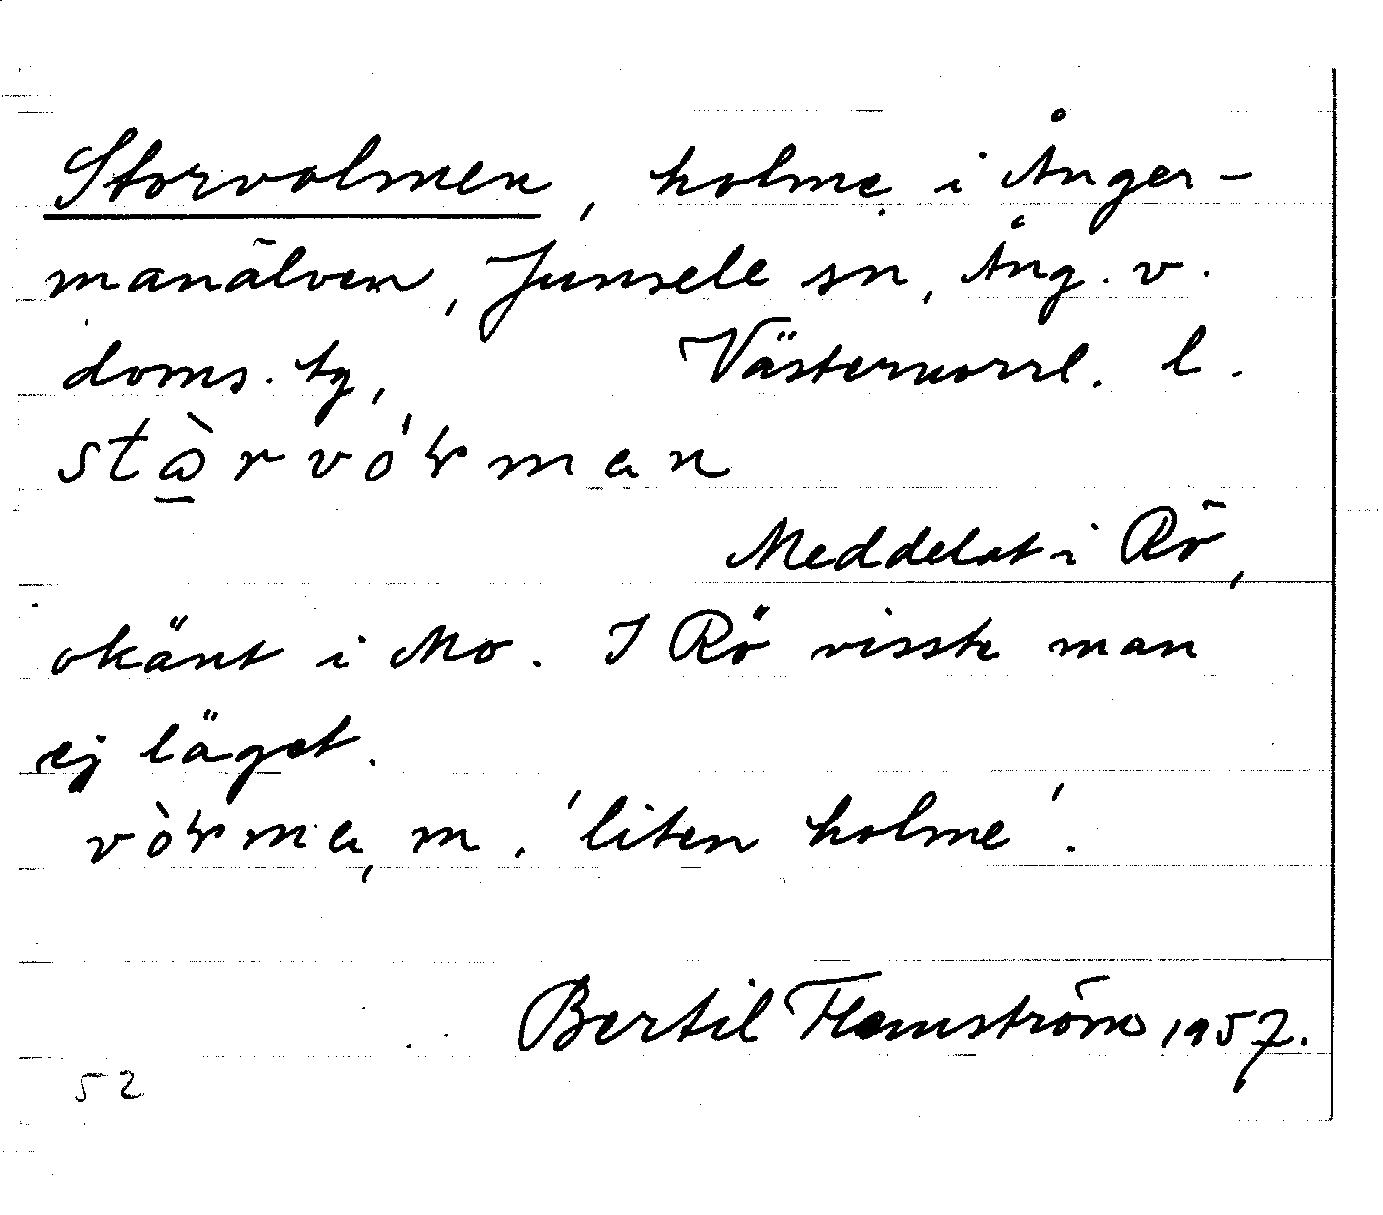 Storvolmen, holme i Ånger-
manälven, Junsele sn, Ång. v.
doms. tg, Västernorrl. l.
Meddelat i Rö,
okänt i Mo. I Rö visste man
ej läget.
m. 'liten holme'.
Bertil Flemström 1957.
52